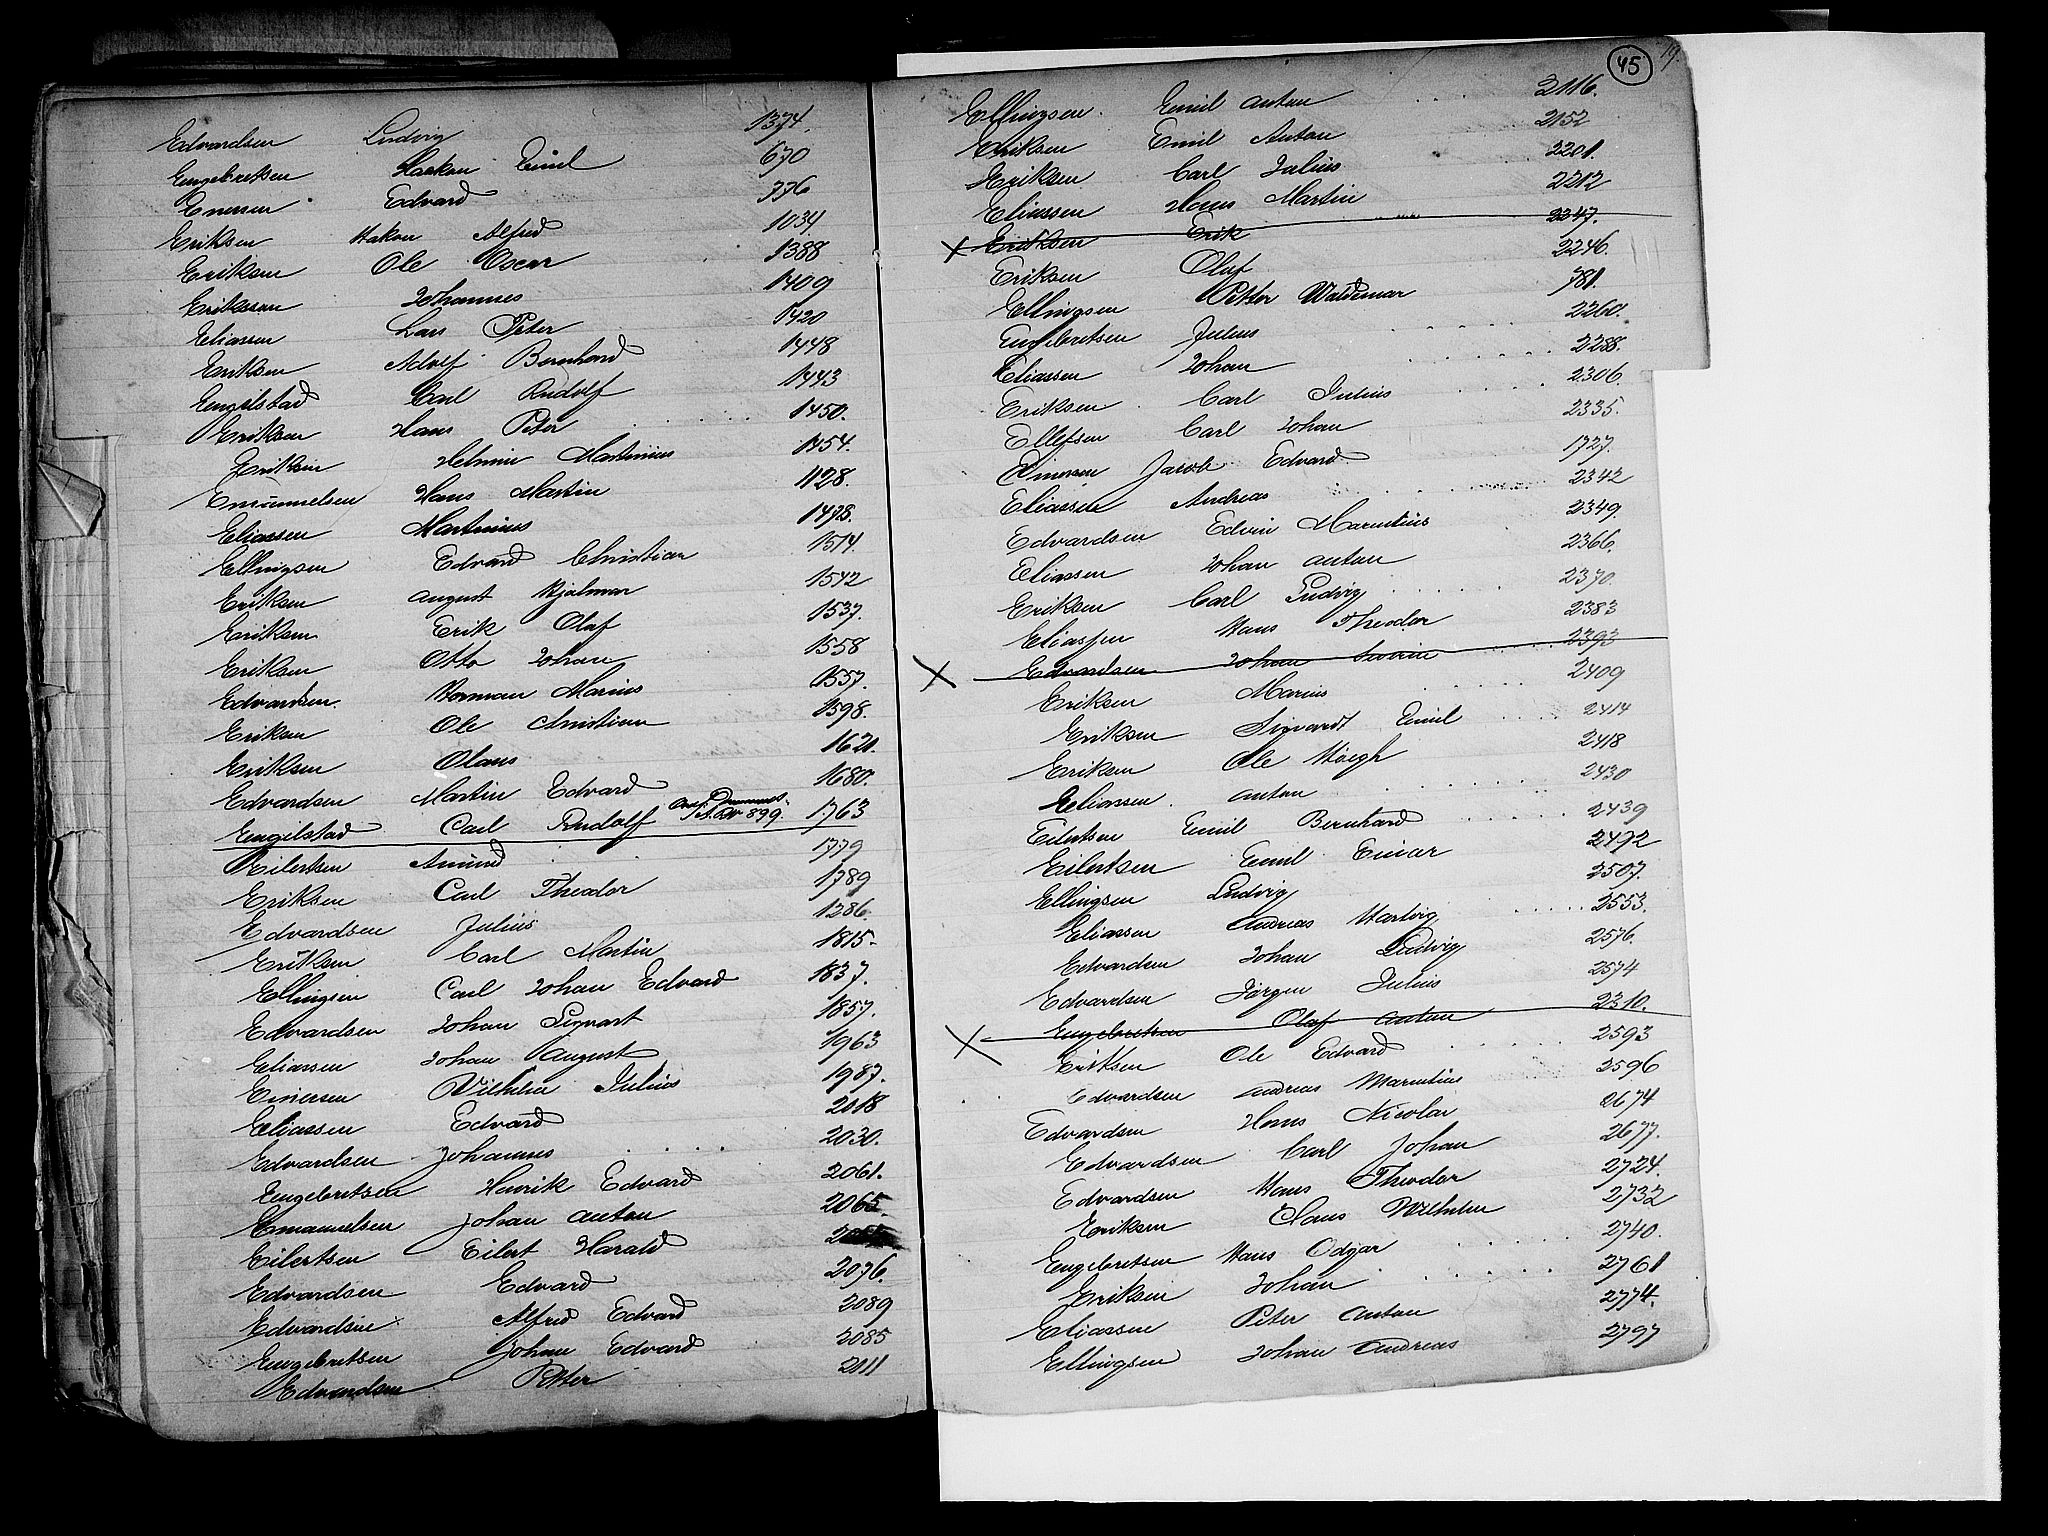 Edvardsen Ludvig 1374.
Engebretsen Haakon Emil 670
Enersen Edvard 776
Eriksen Hakon Alfred 1034
Eriksen Ole Oscar 1388
Eriksson Johannes 1409
Eliasen Lars Peter 1420
Eriksen Adolf Bernhard 1448
Engelstad Carl Rudolf 1443
Eriksen Hans Peter 1450.
Eriksen Helmin Martinius 1454.
Emanuelsen Hans Martin 1128.
Eliassen Martinius 1478.
Ellingsen Edvard Christian 1514.
Eriksen August Hjalmar 1542
Eriksen Erik Olaf 1537.
Eriksen Otto Johan 1558
Edvardsen Herman Marius 1557.
Eriksen Ole Christian 1598.
Eriksen Olaus 1621.
Edvardsen Martin Edvard 1680.
Engelstad Carl Rudolf 899. 1763
Eilertsen Amund 1779
Eriksen Carl Theodor 1789
Edvardsen Julius 1286.
Eriksen Carl Martin 1815.
Ellingsen Carl Johan Edvard 1837.
Edvardsen Johan Sigvart 1857.
Eliassen Johan August 1963
Einersen Vilhelm Julius 1987.
Eliassen Edvard 2018
Edvardsen Johannes 2030.
Engebretsen Henrik Edvard 2061.
Emanuelsen Johan Anton 2065.
Eilertsen Eilert Harald
Edvardsen Edvard 2076.
Edvardsen Alfred Edvard 2089
Engebretsen Johan Edvard 2085
Edvardsen Petter 2011
45 19.
Ellingsen. Emil Anton 2116.
Eriksen Emil Anton 2152
Eriksen Carl Julius 2201.
Eliassen Hans Martin 2212
X Eriksen Erik 2247.
Eriksen Olaf 2246.
Ellingsen Petter Waldemar 781.
Engebretsen Julius 2260.
Eliassen Johan 2288.
Eriksen Carl Julius 2306.
Ellefsen Carl Johan 2335.
Einersen Jacob Edvard 1727.
Eliassen Andreas 2342
Edvardsen Edvin Marentius 2349
Eliassen Johan Anton 2366.
Eriksen Carl Ludvig 2370.
Eliassen Hans Theodor 2383
X Edvardsen Johan Severin 2393
Eriksen Marius 2409
Eriksen Sigvardt Emil 2414
Eriksen Ole Høegh 2418
Eliassen Anton 2430
Eilertsen Emil Bernhard 2439
Eilertsen Emil Einar 2492
Ellingsen Ludvig 2507.
Eliassen Andreas Hartvig 2553.
Edvardsen Johan Ludvig 2576.
Edvardsen Jørgen Julius 2574
X Engebretsen Olaf Anton 2310.
Eriksen Ole Edvard 2593
Edvardsen Andreas Marentius 2596
Edvardsen Hans Nicolai 2674
Edvardsen Carl Johan 2677.
Edvardsen Hans Theodor 2724.
Eriksen Claus Wilhelm 2732
Engebretsen Hans Odgar 2740.
Eriksen Johan 2761
Eliassen Peter Anton 2774.
Ellingsen Johan Andreas 2797